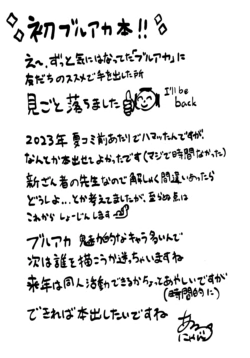 初ブルアカ本!!
え〜、ずっと気にはなってた「ブルアカ」に
友だちのススメで手を出した所
見ごと落ちました
I'll be
back
2023年 夏コミ前あたりでハマッたんですが、
なんとか本出せてよかったです(マジで時間なかった)
新ざん者の先生なので解しゃく間違いあったら
どうしよ…とか考えてましたが、至らぬ点は
これからしょーじんします
ブルアカ 魅力的なキャラ多いんで
次は誰を描こうか迷っちゃいますね
来年は同人活動できるかちょっとあやしいですが
(時間的に)
できれば本出したいですね